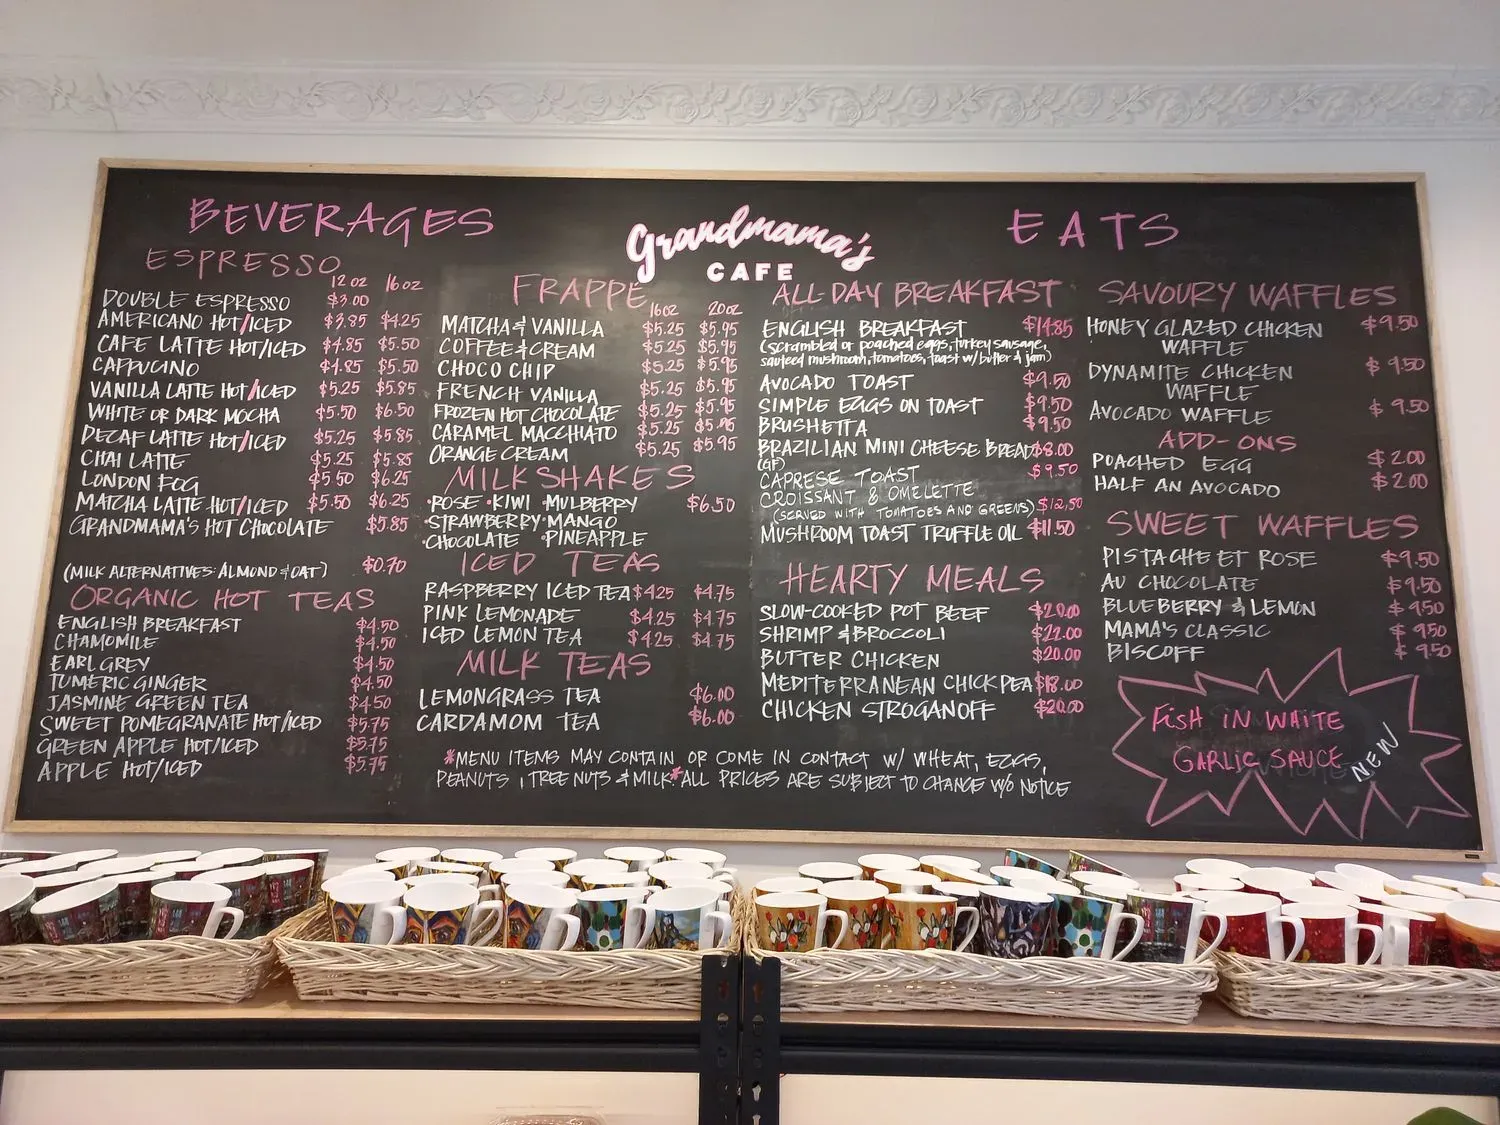 BEVERAGES
Grandmama's
CAFE
EATS
ESPRESSO
12oz 16oz
DOUBLE ESPRESSO $3.00
AMERICANO HOT/ICED $3.85 $4.25
CAFE LATTE HOT/ICED $4.85 $5.50
CAPPUCINO $4.85 $5.50
VANILLA LATTE HOT/ICED $5.25 $5.85
WHITE OR DARK MOCHA $5.50 $6.50
DECAF LATTE HOT/ICED $5.25 $5.85
CHAI LATTE $5.25 $5.85
LONDON FOG $5.50 $6.25
MATCHA LATTE HOT/ICED $5.50 $6.25
GRANDMAMA'S HOT CHOCOLATE $5.85
(MILK ALTERNATIVES: ALMOND & OAT) $0.70
ORGANIC HOT TEAS
ENGLISH BREAKFAST $4.50
CHAMOMILE $4.50
EARL GREY $4.50
TUMERIC GINGER $4.50
JASMINE GREEN TEA $4.50
SWEET POMEGRANATE HOT/ICED $5.75
GREEN APPLE HOT/ICED $5.75
APPLE HOT/ICED $5.75
FRAPPE
16oz 20oz
MATCHA & VANILLA $5.25 $5.95
COFFEE & CREAM $5.25 $5.95
CHOCO CHIP $5.25 $5.95
FRENCH VANILLA $5.25 $5.95
FROZEN HOT CHOCOLATE $5.25 $5.95
CARAMEL MACCHIATO $5.25 $5.95
ORANGE CREAM $5.25 $5.95
MILKSHAKES
·ROSE ·KIWI ·MULBERRY $6.50
·STRAWBERRY·MANGO
·CHOCOLATE ·PINEAPPLE
ICED TEAS
RASPBERRY ICED TEA $4.25 $4.75
PINK LEMONADE $4.25 $4.75
ICED LEMON TEA $4.25 $4.75
MILK TEAS
LEMONGRASS TEA $6.00
CARDAMOM TEA $6.00
*MENU ITEMS MAY CONTAIN OR COME IN CONTACT W/ WHEAT, EGGS,
PEANUTS, TREE NUTS & MILK*ALL PRICES ARE SUBJECT TO CHANGE W/O NOTICE
ALL-DAY BREAKFAST
ENGLISH BREAKFAST $14.85
(scrambled or poached eggs, turkey sausage,
sauteed mushroom, tomatoes, toast w/ butter & jam)
AVOCADO TOAST $9.50
SIMPLE EGGS ON TOAST $9.50
BRUSHETTA $9.50
BRAZILIAN MINI CHEESE BREAD $8.00
(GF)
CAPRESE TOAST $9.50
CROISSANT & OMELETTE
(SERVED WITH TOMATOES AND GREENS) $12.50
MUSHROOM TOAST TRUFFLE OIL $11.50
HEARTY MEALS
SLOW-COOKED POT BEEF $20.00
SHRIMP & BROCCOLI $22.00
BUTTER CHICKEN $20.00
MEDITERRANEAN CHICKPEA $18.00
CHICKEN STROGANOFF $20.00
SAVOURY WAFFLES
HONEY GLAZED CHICKEN $9.50
WAFFLE
DYNAMITE CHICKEN $9.50
WAFFLE
AVOCADO WAFFLE $9.50
ADD-ONS
POACHED EGG $2.00
HALF AN AVOCADO $2.00
SWEET WAFFLES
PISTACHE ET ROSE $9.50
AU CHOCOLATE $9.50
BLUEBERRY & LEMON $9.50
MAMA'S CLASSIC $9.50
BISCOFF $9.50
FISH IN WHITE
GARLIC SAUCE
NEW